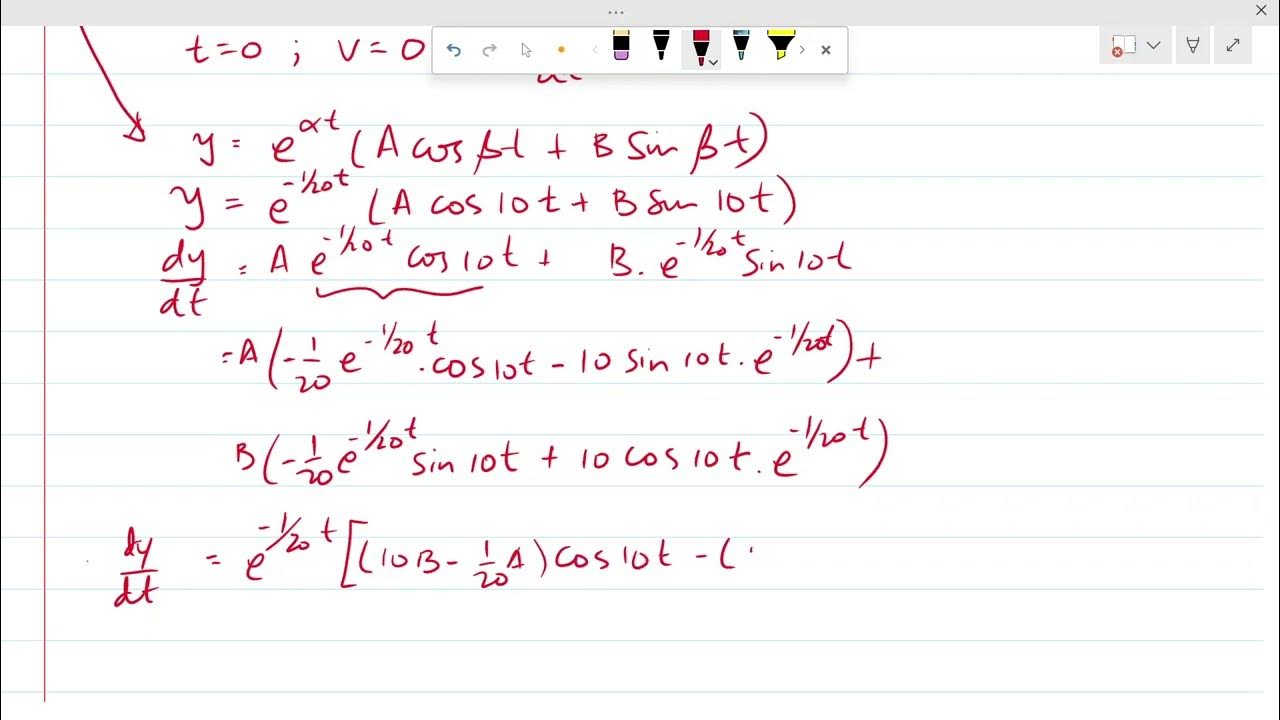 t=0 ; v=0
y = e^{αt} (A cos βt + B sin βt)
y = e^{-1/20 t} (A cos 10t + B sin 10t)
dy/dt = A e^{-1/20 t} cos 10t + B. e^{-1/20 t} sin 10t
= A (-1/20 e^{-1/20 t} . cos 10t - 10 sin 10t . e^{-1/20 t}) +
B (-1/20 e^{-1/20 t} sin 10t + 10 cos 10t . e^{-1/20 t})
dy/dt = e^{-1/20 t} [(10B - 1/20 A) cos 10t - (